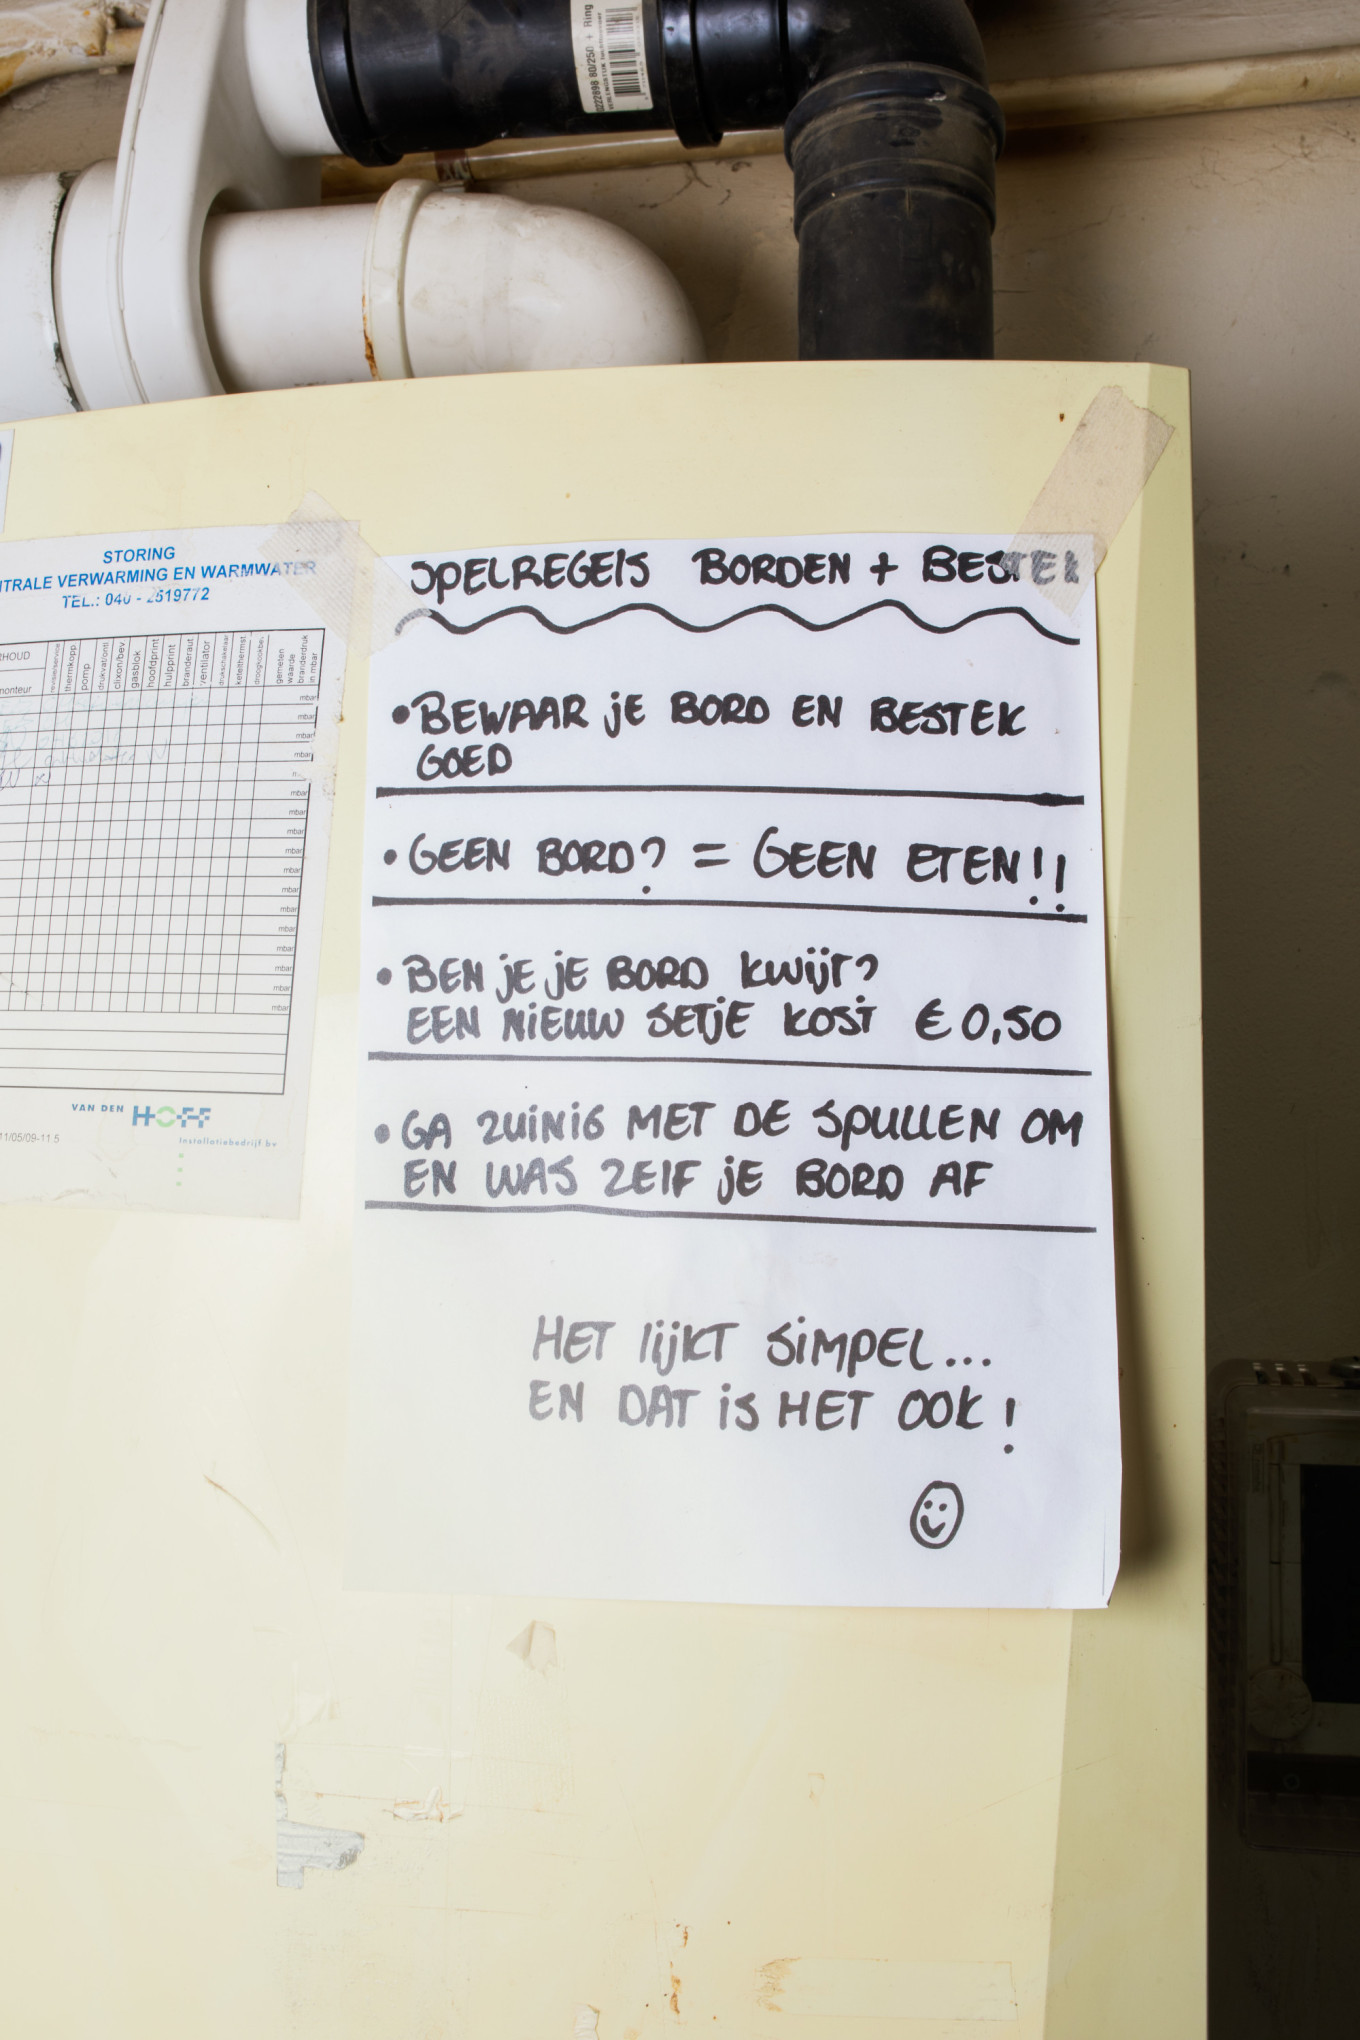 0222698 80/250 + Ring
STORING
NTRALE VERWARMING EN WARMWATER
TEL.: 040 - 2519772
RHOUD
monteur
thermkopp.
pomp
drukvat/ontl
clixon/bev.
gasblok
hoofdprint
hulpprint
branderaut.
ventilator
drukschakelaar
ketelthermst.
droogkookbev.
gemeten
waarde
branderdruk
in mbar
mbar
mbar
mbar
mbar
mbar
mbar
mbar
mbar
mbar
mbar
mbar
mbar
mbar
mbar
mbar
mbar
VAN DEN HOFF
Installatiebedrijf bv
11/05/09-11 5
SPELREGELS BORDEN + BESTEK
• BEWAAR JE BORD EN BESTEK
GOED
• GEEN BORD? = GEEN ETEN!!
• BEN JE JE BORD KWIJT?
EEN NIEUW SETJE KOST € 0,50
• GA ZUINIG MET DE SPULLEN OM
EN WAS ZELF JE BORD AF
HET LIJKT SIMPEL...
EN DAT IS HET OOK!